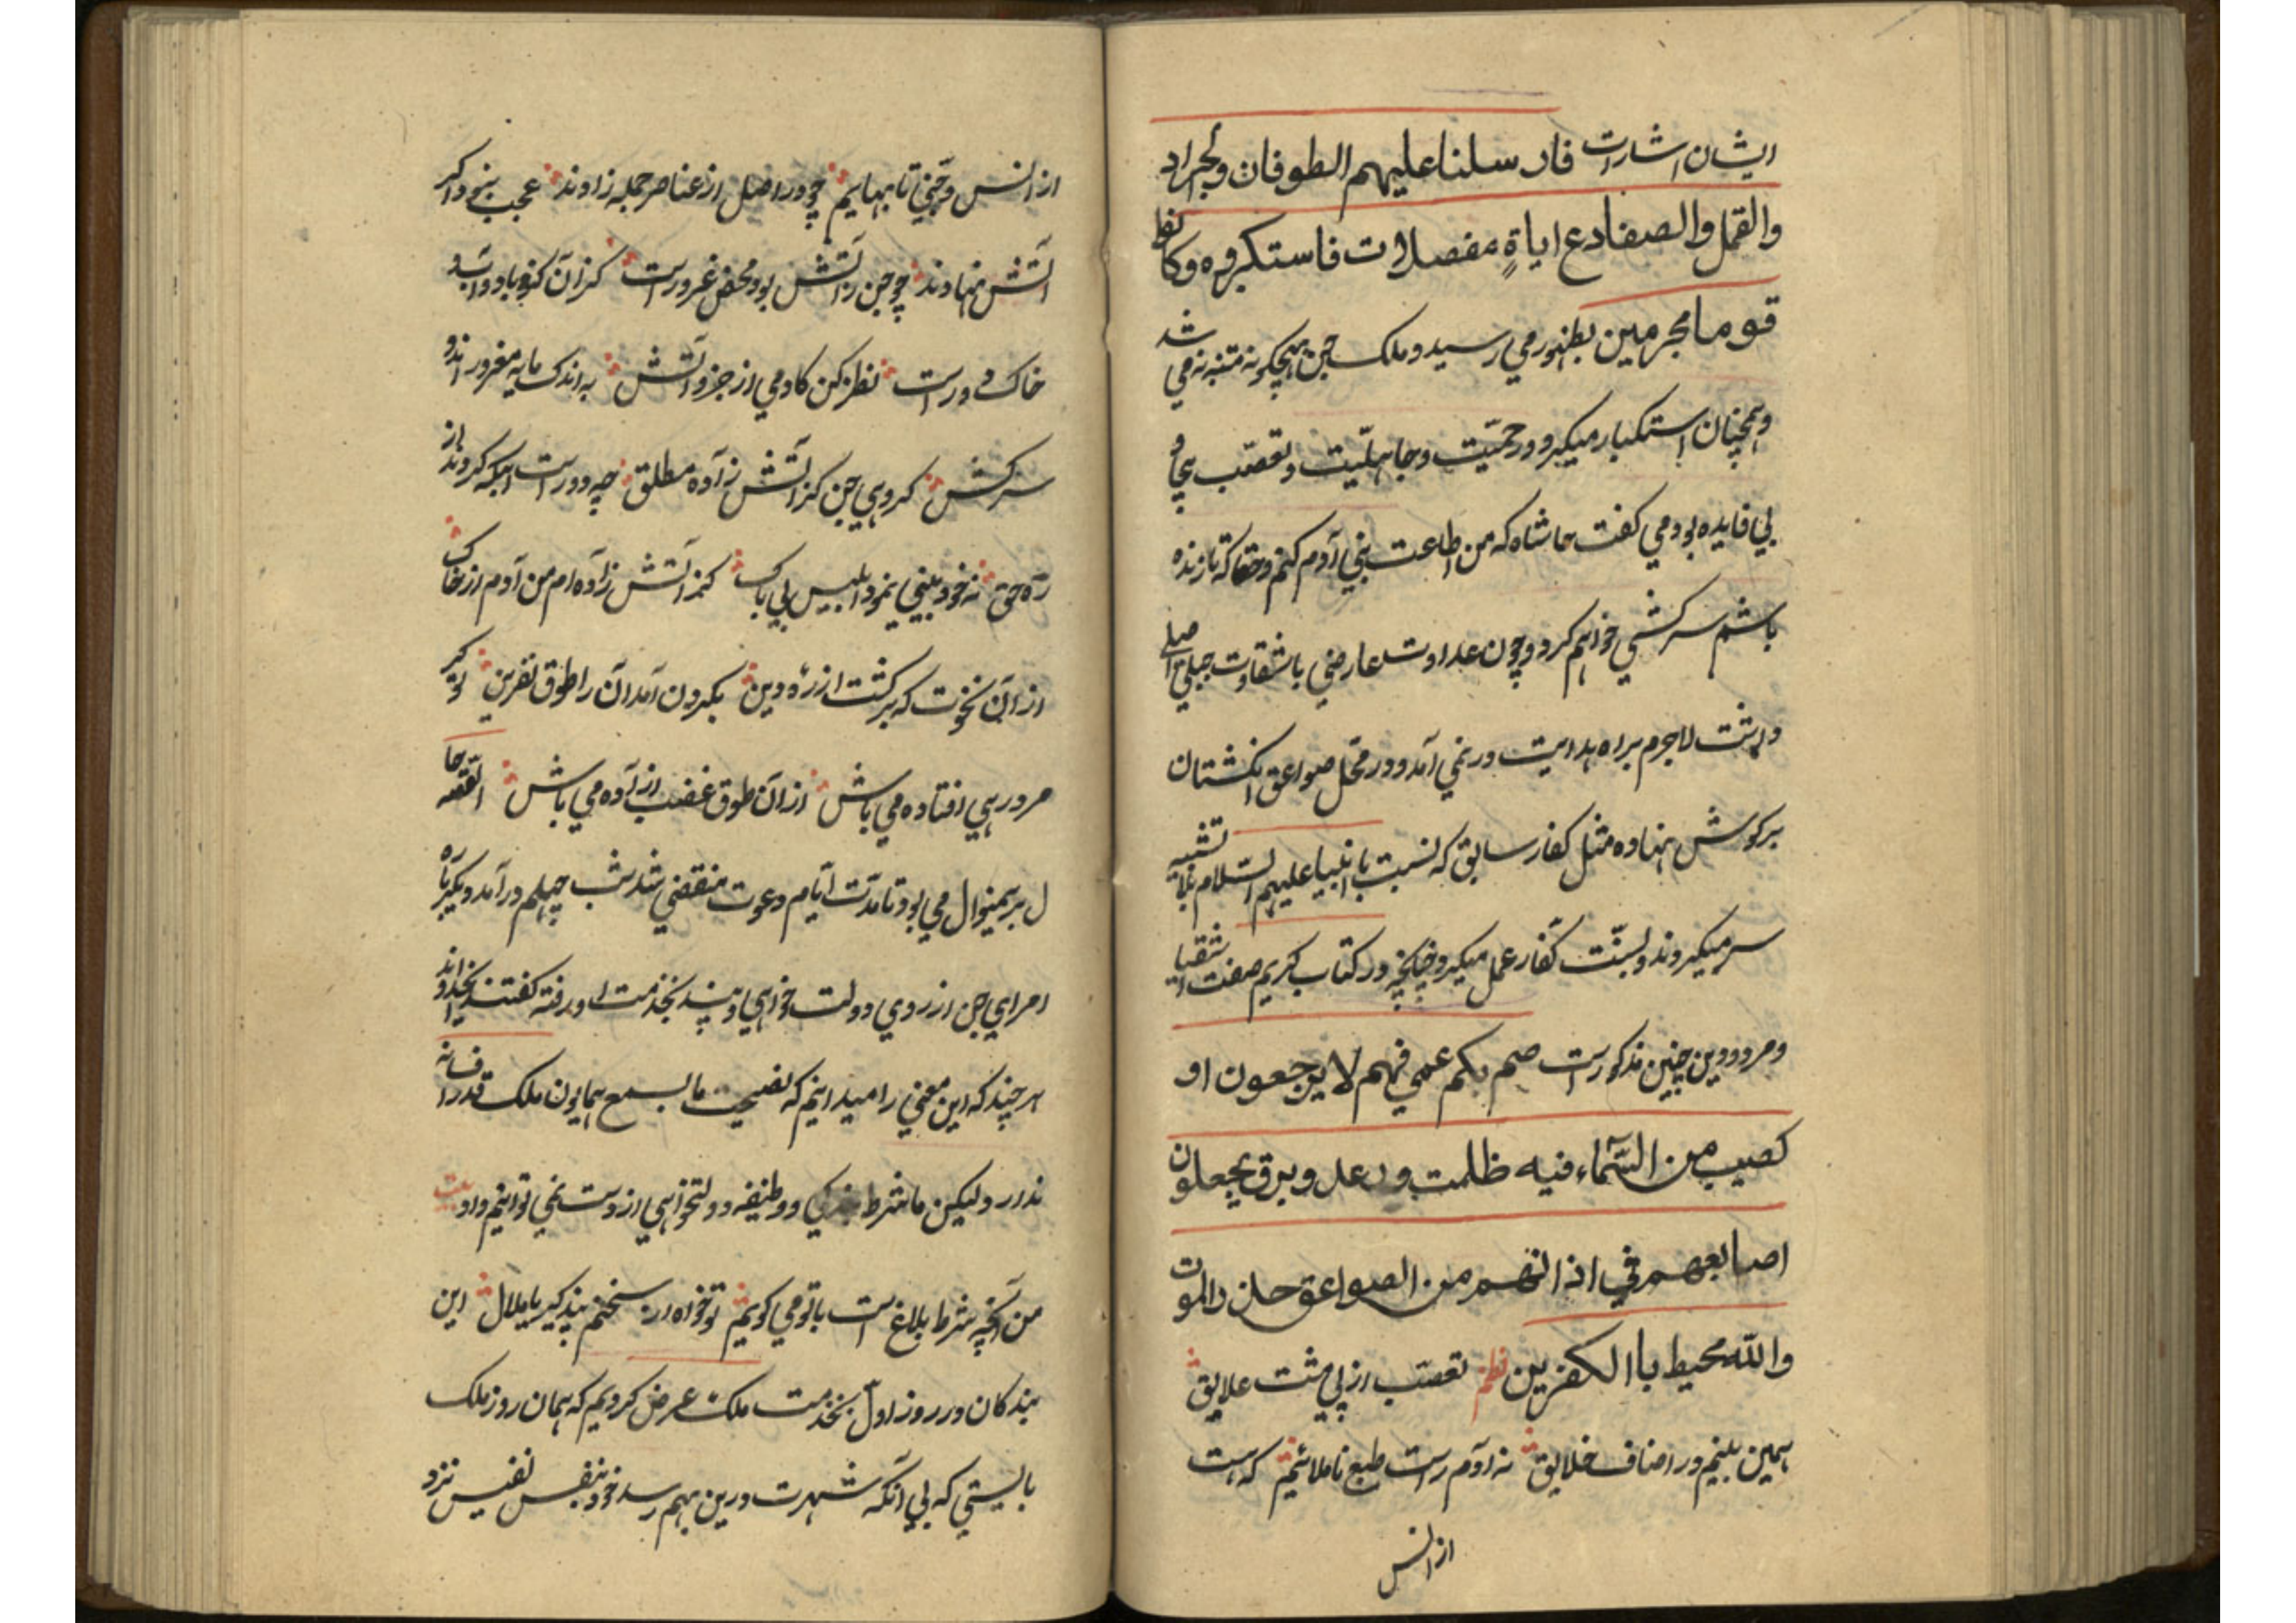 ایشان اشارات فارسلنا علیهم الطوفان والجراد
والقمل والصفادع ایاةٍ مفصلات فاستکبروه وکانوا
قوما مجرمین بظهور می رسید و ملک جن هیچکونه متنبه نمی شد
و همچنان استکبار میکرد و حمیّت و جاهلیّت و تعصّب بیجا و
بی فایده بود می کفت حاشاه که من اطاعت بنی آدم کنم و حقا که تا زنده
باشم سرکشی خواهم کرد و چون عداوت عارضی با شقاوت جبلی اصلی
داشت لاجرم براه هدایت در نمی آمد و در محّل صواعق انکشتان
برکوش نهاده مثل کفار سابق که نسبت با انبیا علیهم السّلام تشبیه
سر میکردند و بسنّت کفّار عمل میکرد چنانچه در کتاب کریم صفت اشقیا
و مردود دین چنین مذکور است صم بکم عمی فهم لا یرجعون او
کصیب من السّمآء فیه ظلمت ورعد وبرق یجعلون
اصابعهم فی اذانهم من الصواعق حذر الموت
والله محیط باالکفرین نظم تعصّب از پی مشت علایق
همین بینم در اصناف خلایق نه آدم راست طبع ناملائیم که هست
از انس
از انس و جّنی تا بهایم چو در اصل از عناصر جمله زادند عجب نبود اکر
آتش نهادند چو جن ز آتش بود محض غرور است کزان کبر باد و آب و
خاک دور است نظر کن کادمی از جزو آتش به اندک مایه مغرور اند و
سرکش کروهی جن کز آتش زآده مطلق چه دور است ابکه کردند از
ره حق نه خود بینی نمود ابلیس بی باک کز آتش زآده ام من آدم از خاک
از آن نخوت که برکشت از ره دین بکردن آمد آن را طوق نفرین تو کر
مرد رهی افتاده می باش از آن طوق غضب آزآده می باش القصّه حا
ل برین منوال می بود تا مدّت ایّام دعوت منقضی شد شب چهلم در آمد دیکر باره
امرای جن از روی دولت خواهی و پند بخدمت او رفته کفتند بخداوند
هر چند که این معنی را میدانیم که نصیحت ما بسمع همایون ملک قدر افسانه
ندارد ولیکن ما شرط بندکی و وظیفه دولتخواهی از دست نمی توانیم داد بیت
من آنچه شرط بلاغ است با تو می کویم تو خواه از سخنم پند کیر یا ملال این
بندکان در روز اول بخدمت ملک عرض کردیم که همان روز ملک
بایستی که بی آنکه شهرت درین بهم رسد خود بنفس نفیس نزد